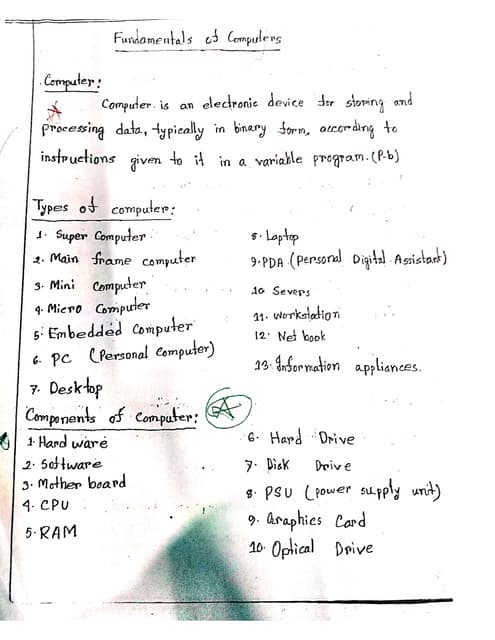 Fundamentals of Computers
Computer:
Computer is an electronic device for storing and
processing data, typically in binary form, according to
instructions given to it in a variable program. (P-b)
Types of computer:
1. Super Computer
2. Main frame computer
3. Mini Computer
4. Micro Computer
5. Embedded Computer
6. PC (Personal Computer)
7. Desktop
8. Laptop
9. PDA (Personal Digital Assistant)
10 Severs
11. Workstation
12. Net book
13. Information appliances.
Components of Computer:
1. Hard ware
2. Software
3. Mother board
4. CPU
5. RAM
6. Hard Drive
7. Disk Drive
8. PSU (power supply unit)
9. Graphics Card
10. Optical Drive